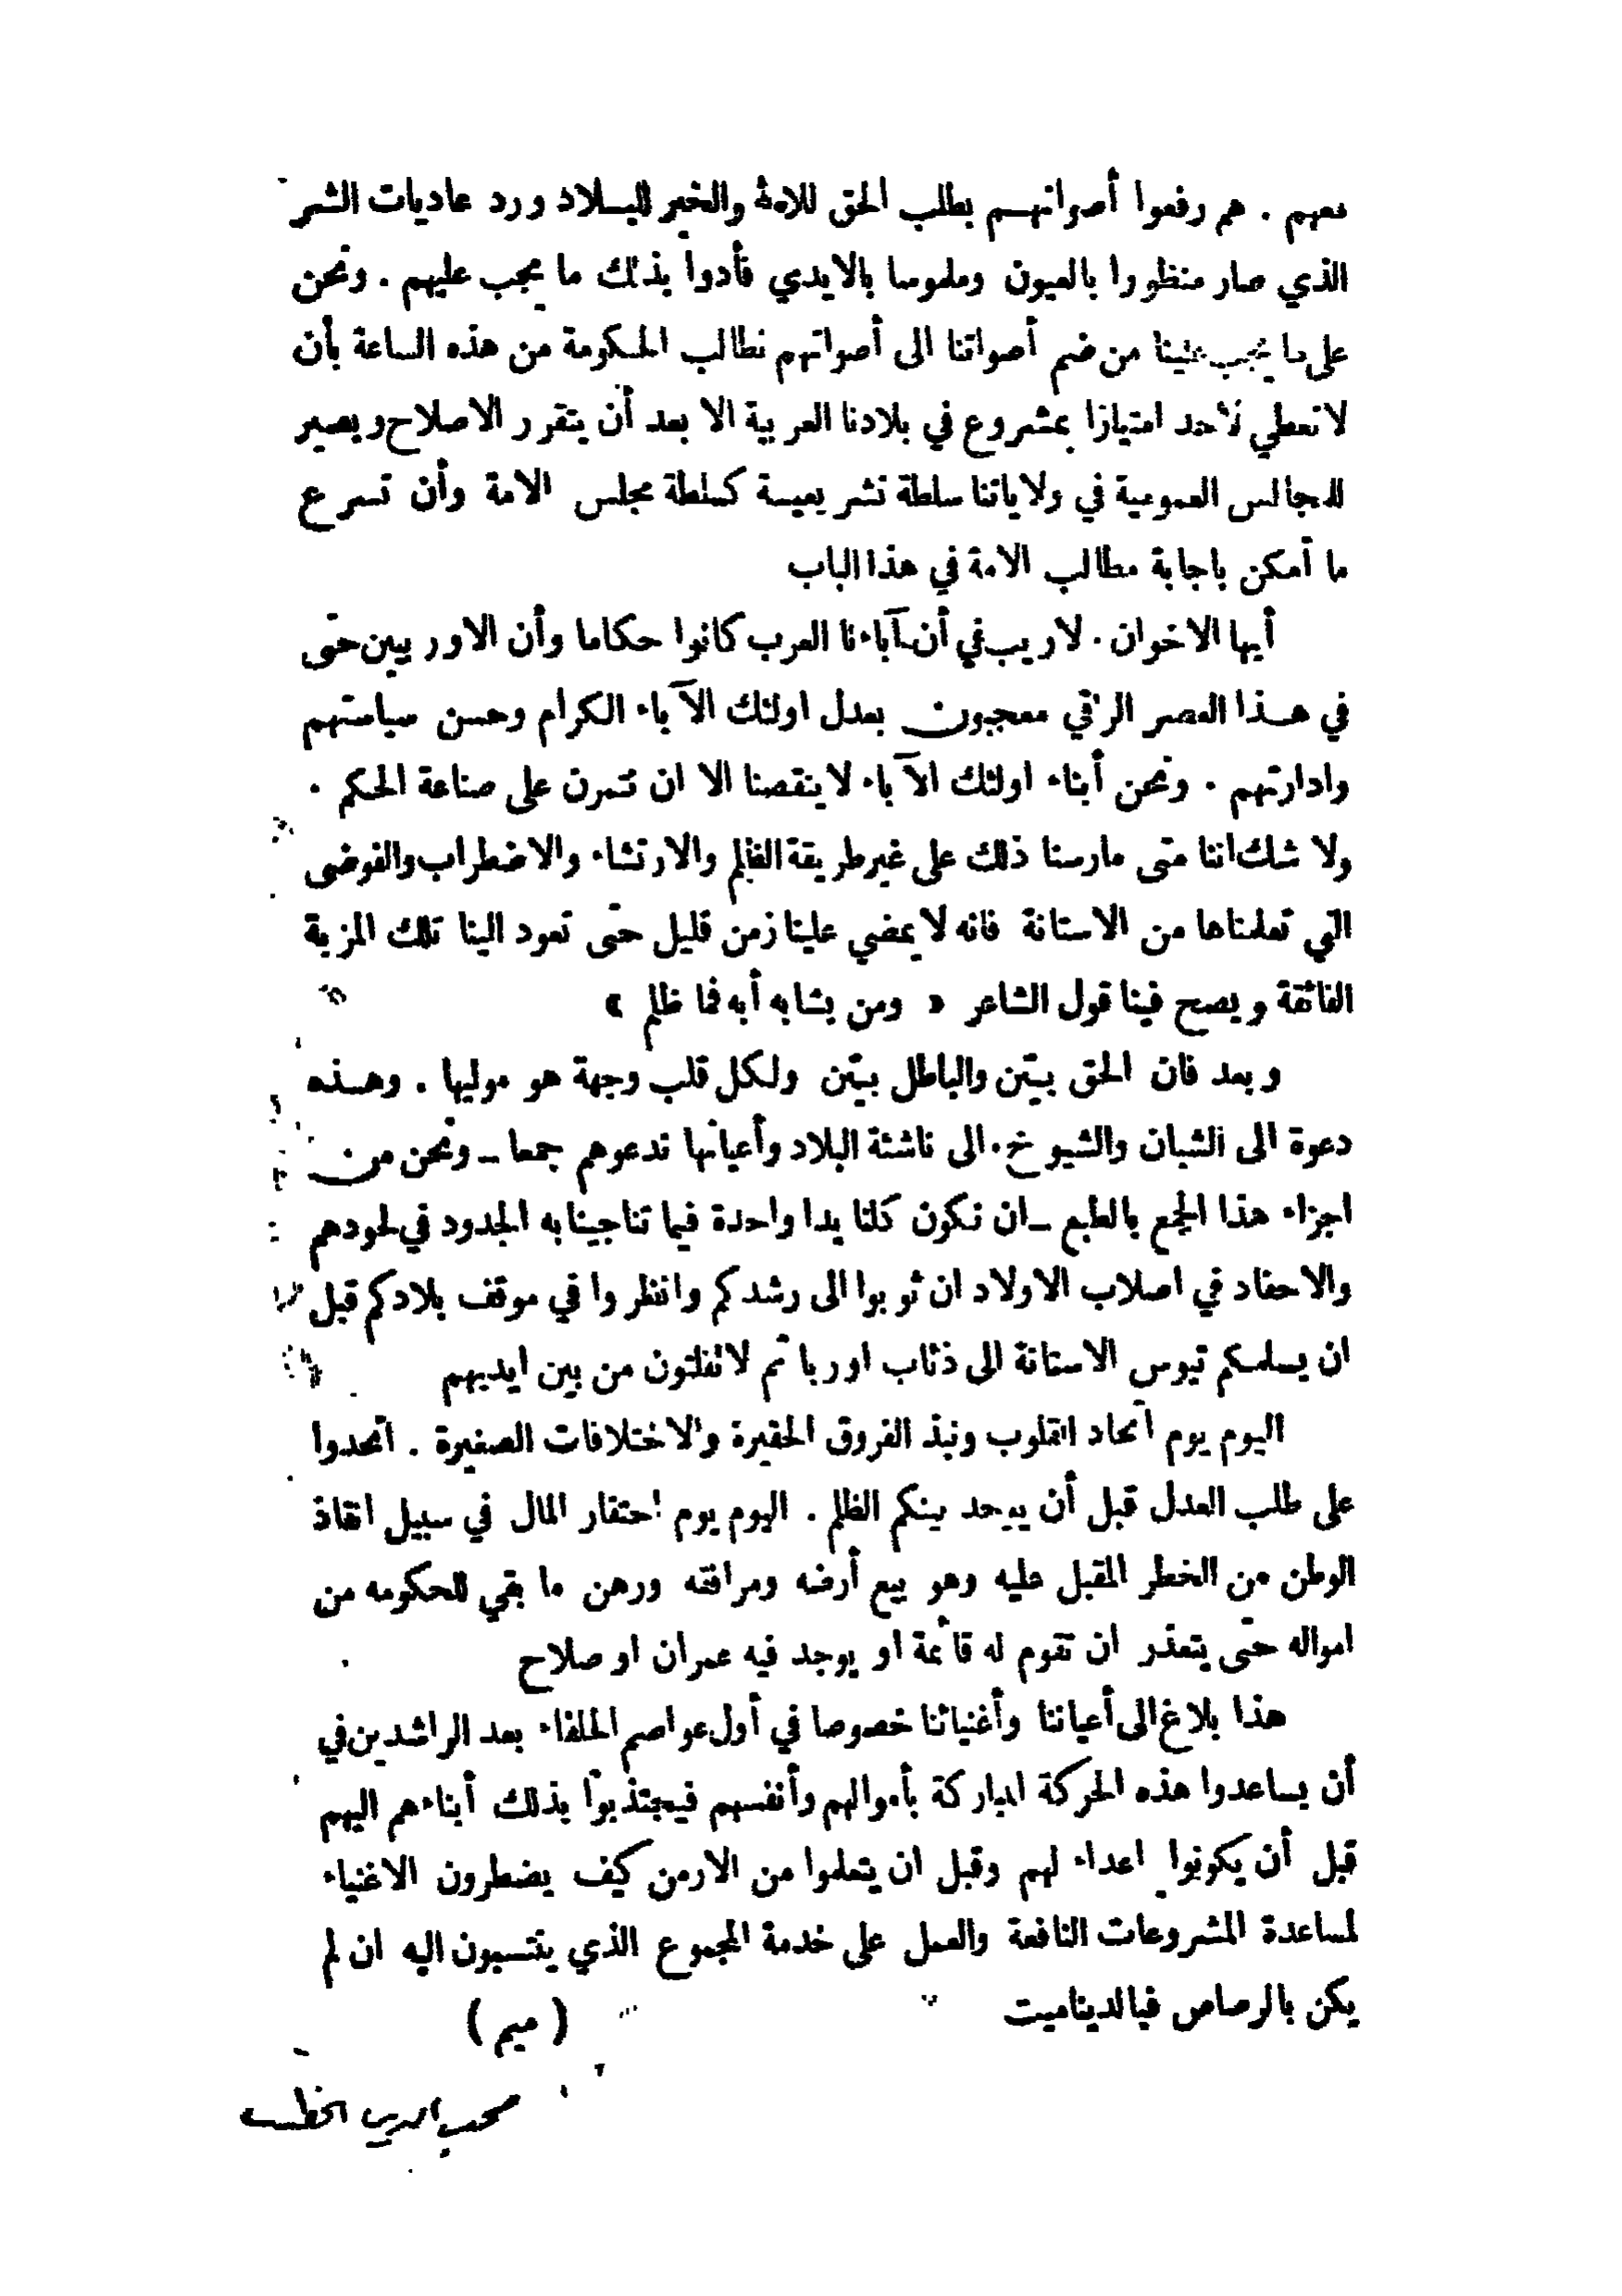 معهم . هم رفعوا أصواتهم بطلب الحق للامة والخير للبلاد ورد عاديات الشر
الذي صار منظورا بالعيون وملموسا بالايدي فأدوا بذلك ما يجب عليهم . ونحن
على ما يجب علينا من ضم أصواتنا الى أصواتهم نطالب الحكومة من هذه الساعة بأن
لا تعطي لاحد امتيازا بمشروع في بلادنا العربية الا بعد أن يتقرر الاصلاح ويصير
للمجالس العمومية في ولاياتنا سلطة تشريعية كسلطة مجلس الامة وأن تسرع
ما أمكن باجابة مطالب الامة في هذا الباب
أيها الاخوان . لا ريب في أن آباءنا العرب كانوا حكاما وأن الاوربيين حتى
في هذا العصر الراقي معجبون بعدل اولئك الآباء الكرام وحسن سياستهم
وادارتهم . ونحن أبناء اولئك الآباء لا ينقصنا الا ان نتمرن على صناعة الحكم .
ولا شك اننا متى مارسنا ذلك على غير طريقة الظلم والارتشاء والاضطراب والفوضى
التي تعلمناها من الاستانة فانه لا يمضي علينا زمن قليل حتى تعود الينا تلك المزية
الفائقة ويصح فينا قول الشاعر « ومن يشابه أبه فما ظلم »
وبعد فان الحق بيّن والباطل بيّن ولكل قلب وجهة هو موليها . وهذه
دعوة الى الشبان والشيوخ . الى ناشئة البلاد وأعيانها ندعوهم جمعا – ونحن من
اجزاء هذا الجمع بالطبع – ان نكون كلنا يدا واحدة فيما تناجينا به الجدود في لحودهم
والاحفاد في اصلاب الاولاد ان ثوبوا الى رشدكم وانظروا في موقف بلادكم قبل
ان يسلمكم تيوس الاستانة الى ذئاب اوربا ثم لا تفلتون من بين ايديهم
اليوم يوم اتحاد القلوب ونبذ الفروق الحقيرة والاختلافات الصغيرة . اتحدوا
على طلب العدل قبل أن يوحد بينكم الظلم . اليوم يوم احتقار المال في سبيل انقاذ
الوطن من الخطر المقبل عليه وهو بيع أرضه ومرافقه ورهن ما بقي للحكومه من
امواله حتى يتعذر ان تقوم له قائمة او يوجد فيه عمران او صلاح
هذا بلاغ الى أعياننا وأغنيائنا خصوصا في أول عواصم الخلفاء بعد الراشدين في
أن يساعدوا هذه الحركة المباركة بأموالهم وأنفسهم فيجتذبوا بذلك أبناءهم اليهم
قبل أن يكونوا اعداء لهم وقبل ان يتعلموا من الارمن كيف يضطرون الاغنياء
لمساعدة المشروعات النافعة والعمل على خدمة المجموع الذي ينتسبون اليه ان لم
يكن بالرصاص فبالديناميت (ميم)
محب الدين الخطيب